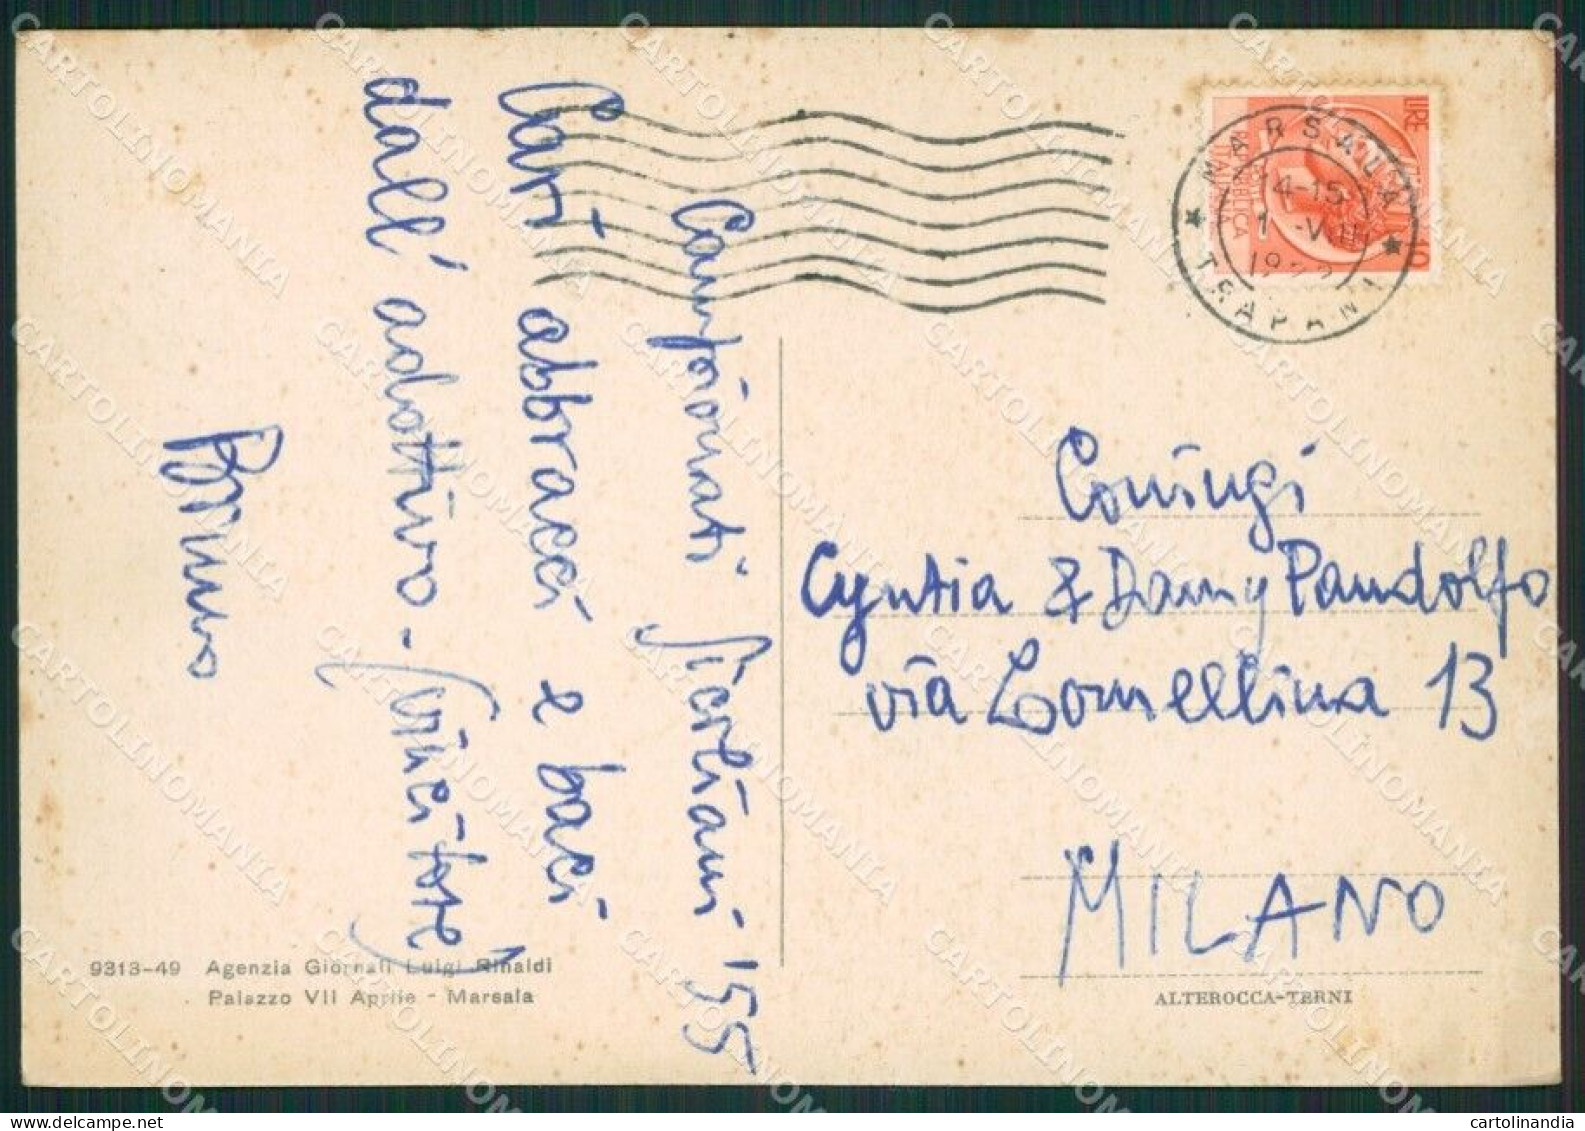 Campionati Siciliani '55
Cari abbracci e baci
dall' adottivo -
Bruno
LIRE 10
REPUBBLICA
MARSALA
14-15
1 -VIII
TRAPANI
Coniugi
Cyntia & Danny Pandolfo
via Lomellina 13
MILANO
9313-49 Agenzia Giornali Luigi Rinaldi
Palazzo VII Aprile - Marsala
ALTEROCCA-TERNI
CARTOLINOMANIA
cartolinandia